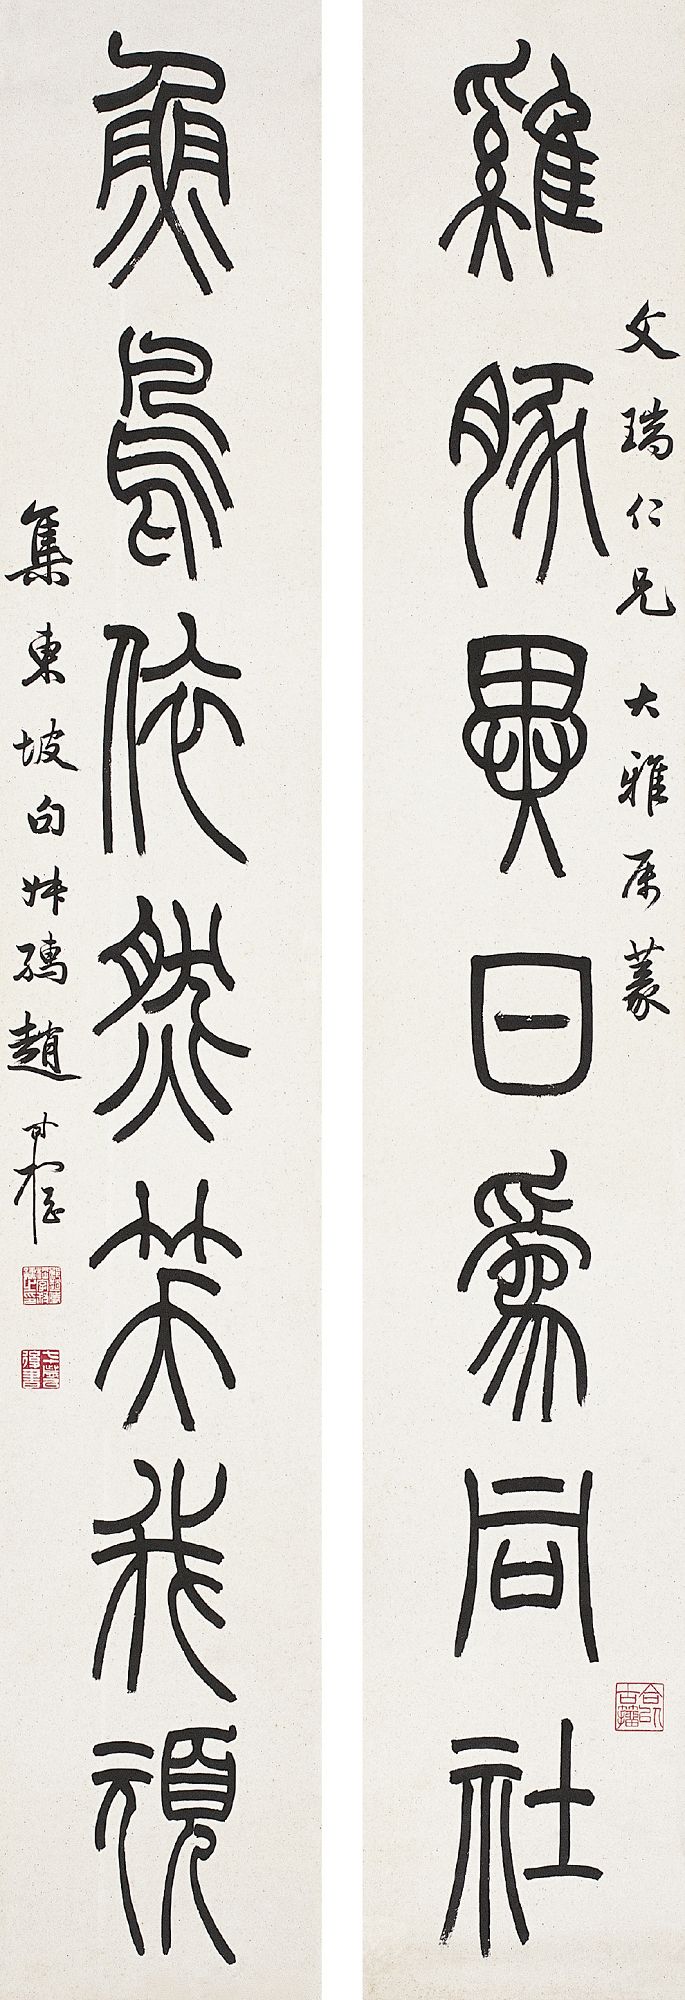 雞豚異日為同社
文瑞仁兄大雅屬篆
合以古籀
魚鳥依然笑我頑
集東坡句叔孺趙時棡